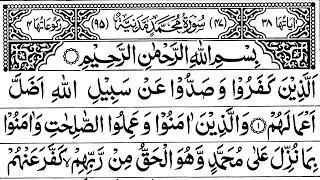 اٰیاتہا ۳۸ (۴۷) سُوْرَۃُ مُحَمَّدٍ مَدَنِیَّۃٌ (۹۵) رکوعاتہا ۴
بِسْمِ اللهِ الرَّحْمٰنِ الرَّحِيْمِ
اَلَّذِيْنَ كَفَرُوْا وَصَدُّوْا عَنْ سَبِيْلِ اللهِ اَضَلَّ
اَعْمَالَهُمْ ۝۱ وَالَّذِيْنَ اٰمَنُوْا وَعَمِلُوا الصّٰلِحٰتِ وَاٰمَنُوْا
بِمَا نُزِّلَ عَلٰى مُحَمَّدٍ وَّهُوَ الْحَقُّ مِنْ رَّبِّهِمْ ۙ كَفَّرَ عَنْهُمْ